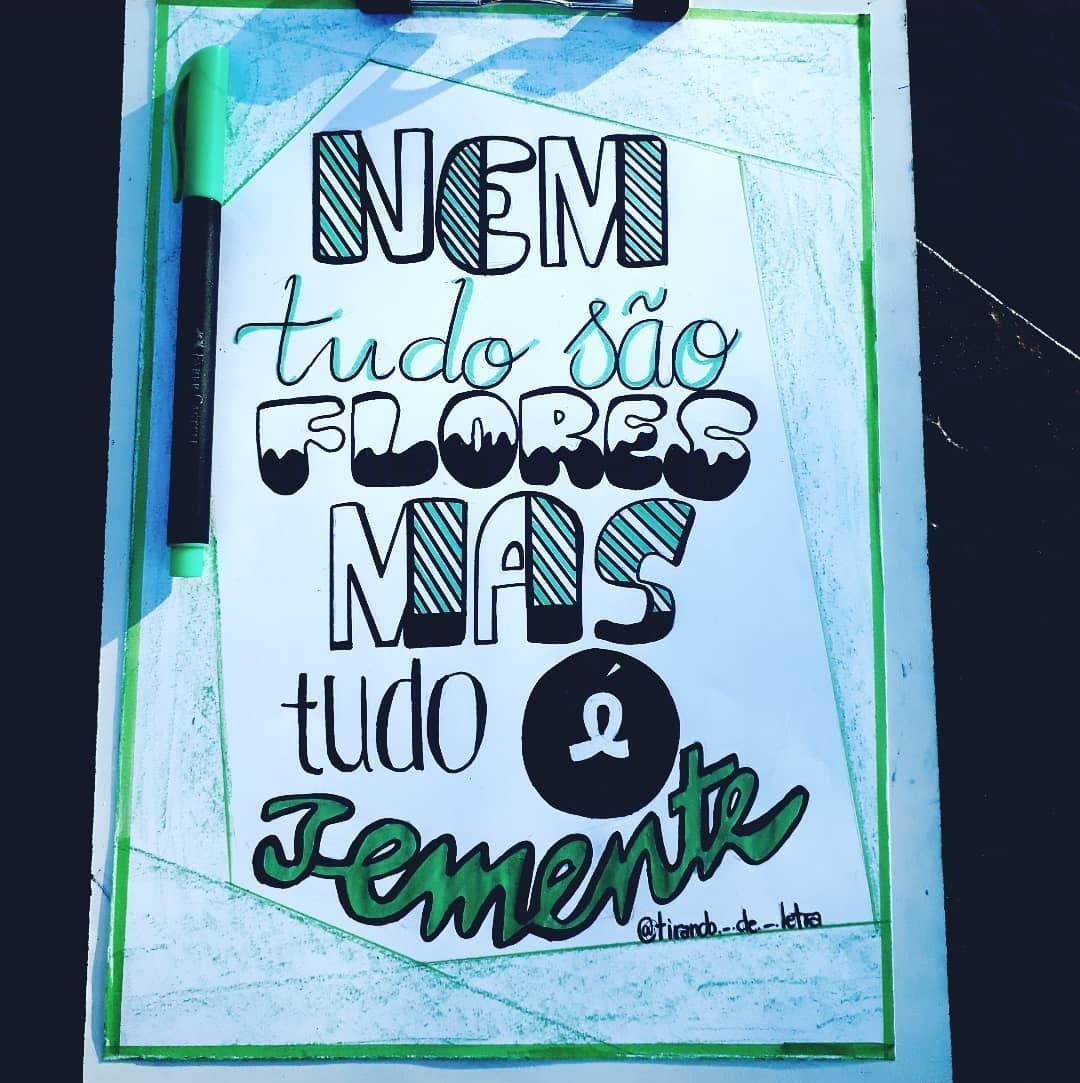 NEM
tudo são
FLORES
MAS
tudo é
Semente
@tirando_._de_._letra